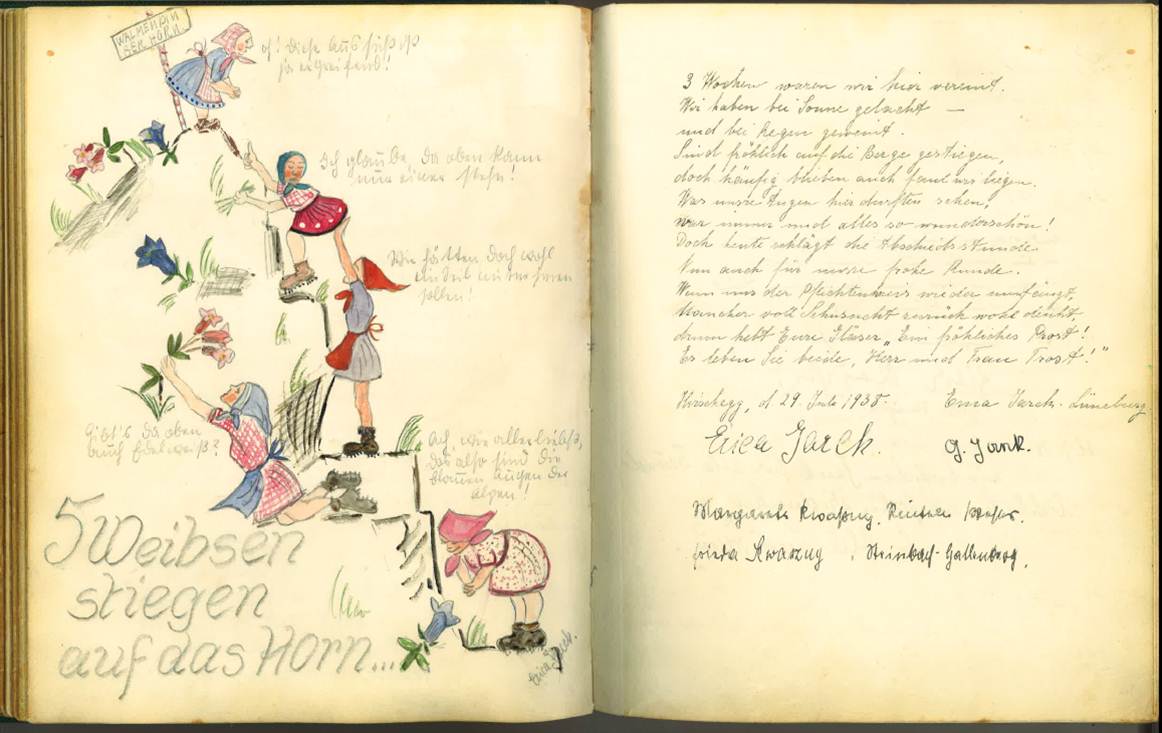 WALMENDIN
SER HORN
oh! diese Aussicht ist
ja ergreifend!
Ich glaube, da oben kann
nur einer stehn!
Wir hätten doch wohl
ein Seil mitnehmen
sollen!
Gibt's da oben
auch Edelweiß?
Ach, wie allerliebst,
das also sind die
blauen Augen der
Alpen!
5 Weibsen
stiegen
auf das Horn...
Erica Jarck.
3 Wochen waren wir hier vereint.
Wir haben bei Sonne gelacht —
und bei Regen geweint.
Sind fröhlich auf die Berge gestiegen,
doch häufig blieben auch faul wir liegen.
Was unsre Augen hier durften sehen,
war immer und alles so wunderschön!
Doch heute schlägt die Abschiedsstunde
Nun auch für unsre frohe Runde.
Wenn uns der Pflichtenkreis wieder umfängt,
Mancher voll Sehnsucht zurück wohl denkt,
drum hebt Eure Gläser „Ein fröhliches Prost!
Es leben Sie beide, Herr und Frau Trost!"
Hirschegg, d. 29 Juli 1938.
Erna Jarck - Lüneburg
Erica Jarck.
G. Jark.
Margarete
Frieda Kwarzug, Steinbach-Hallenberg.